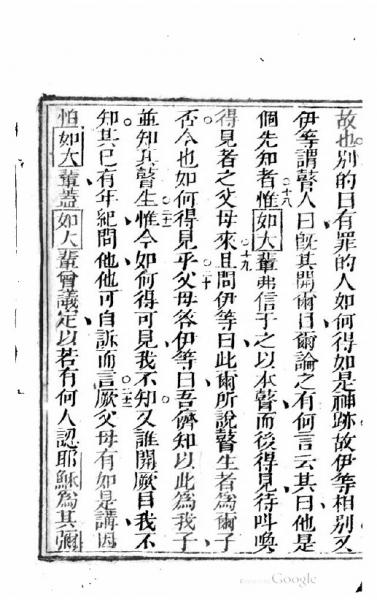 故也別的曰有罪的人如何得如是神跡故伊等相別又
伊等謂瞽人曰旣其開爾目爾論之有何言云其曰他是
個先知者○十八惟如大輩弗信于之以本瞽而後得見待叫喚
得見者之父母來○十九且問伊等曰此爾所說瞽生者為爾子
否今也如何得見乎○二十父母答伊等曰吾儕知以此為我子
並知其瞽生○二一惟今如何得可見我不知又誰開厥目我不
知其已有年紀問他他可自訴而言○二二厥父母有如是講因
怕如大輩蓋如大輩曾議定以若有何人認耶穌為其彌
Google